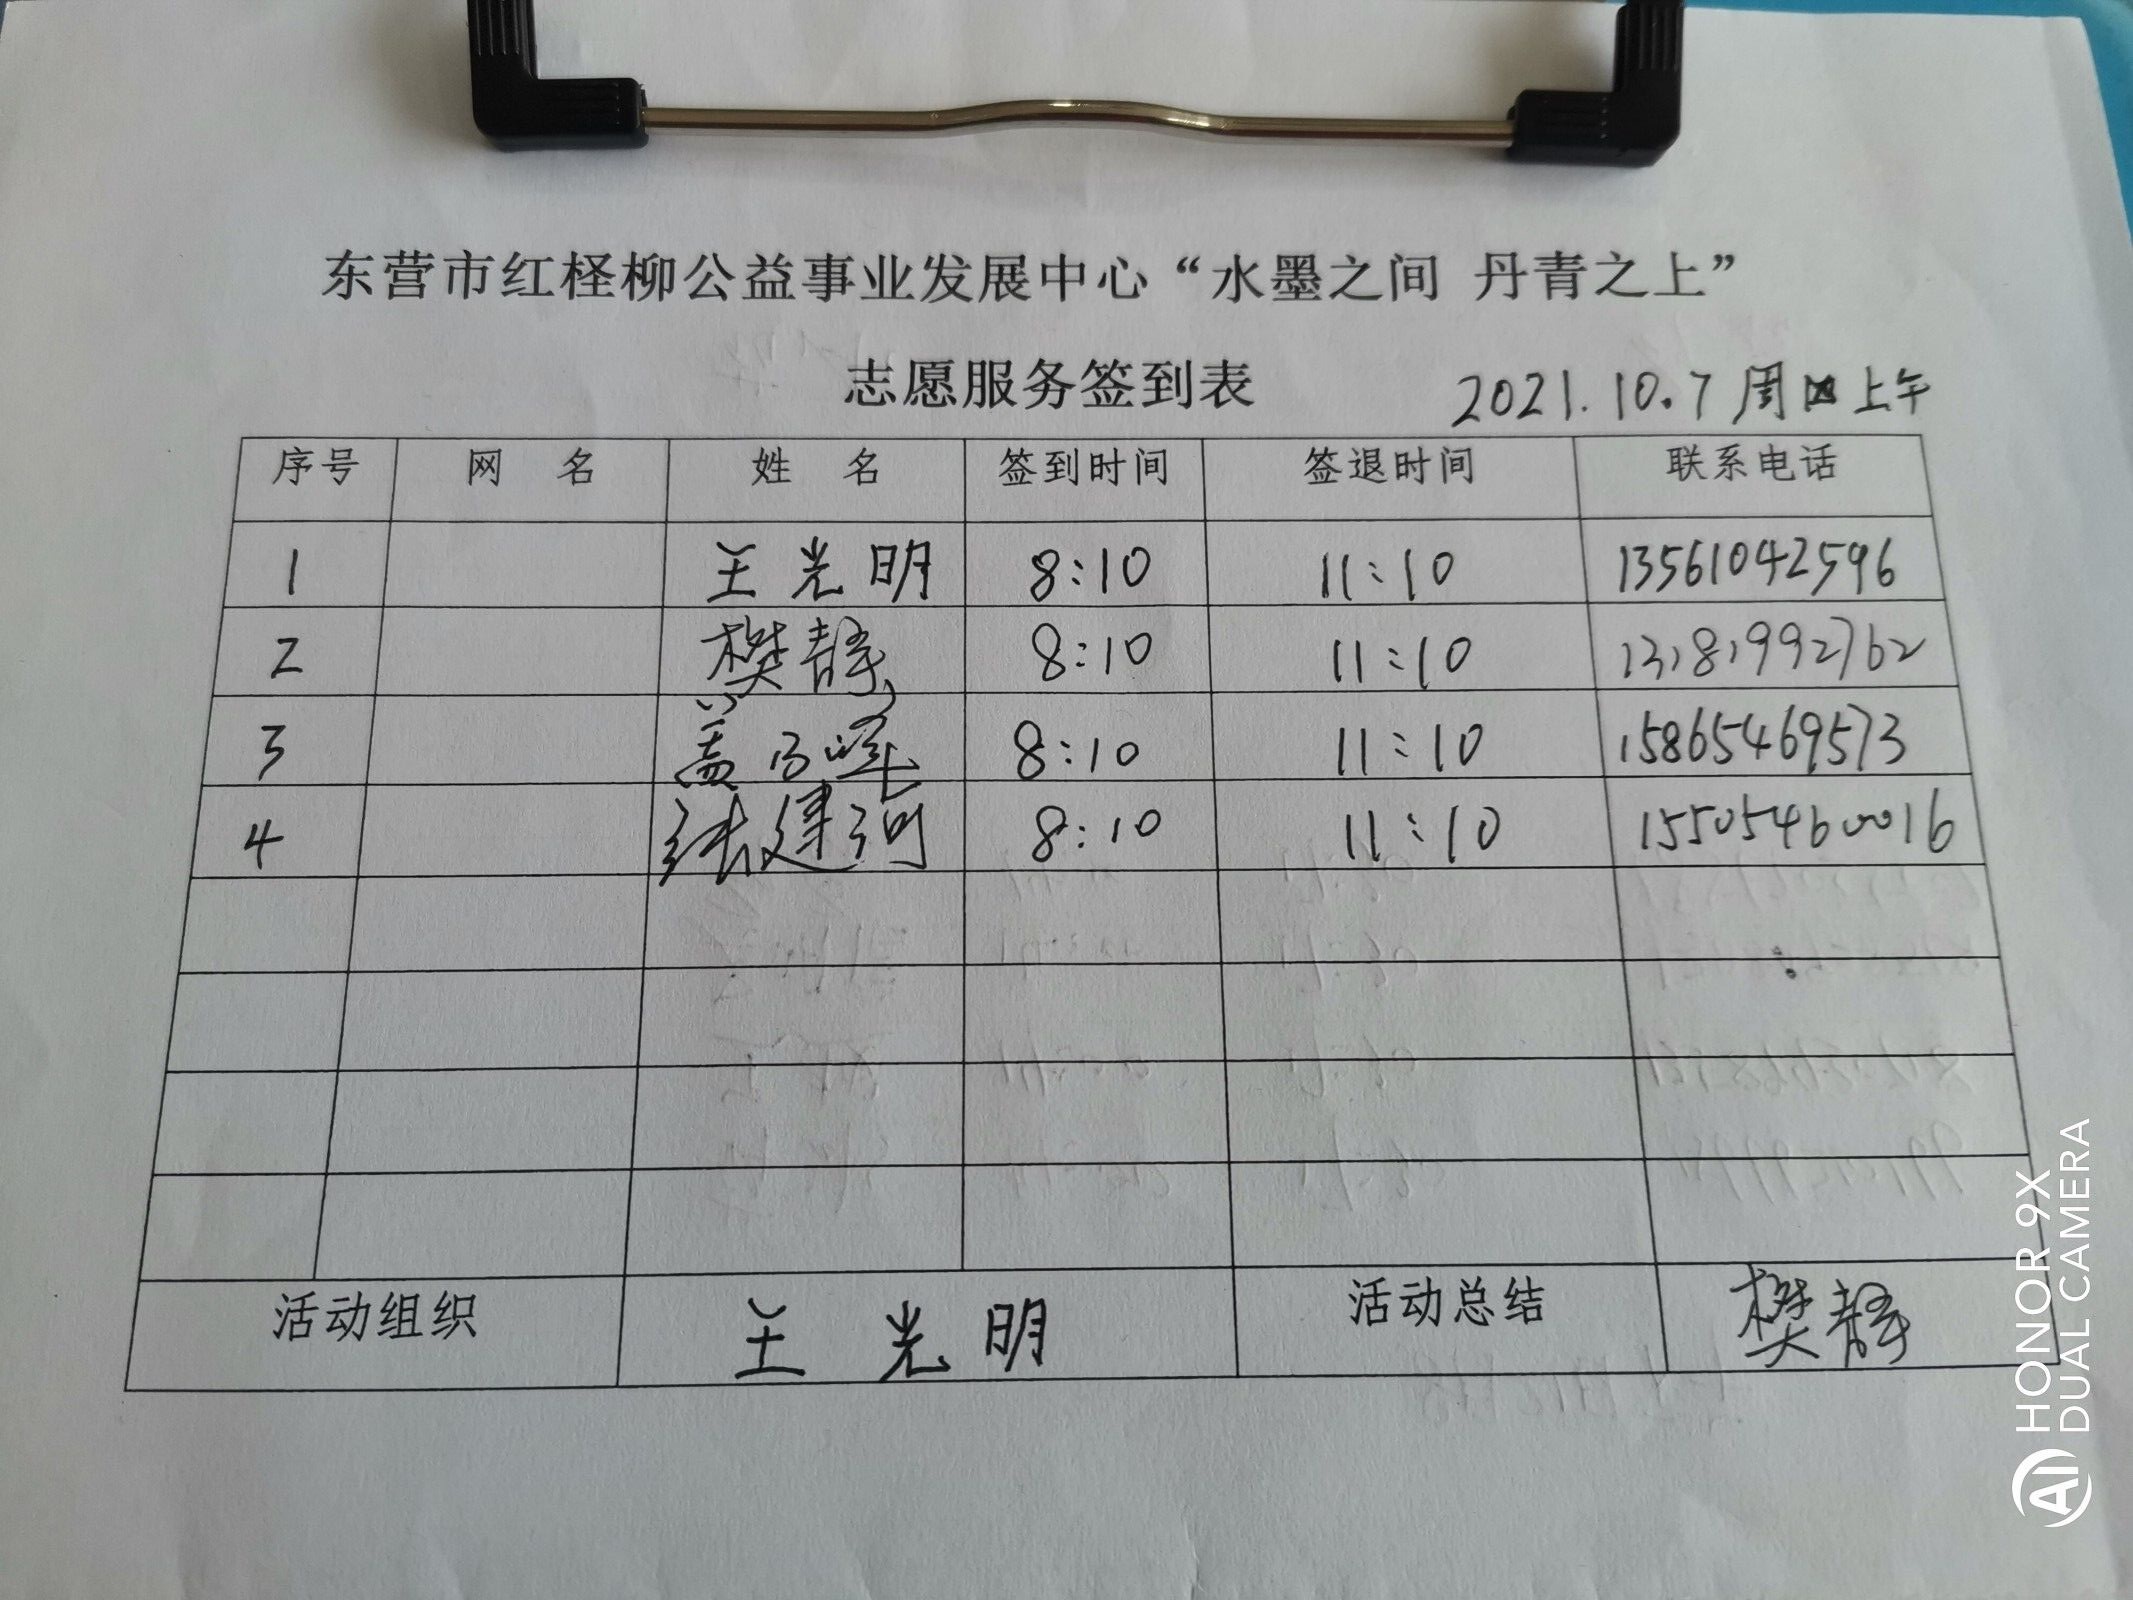 东营市红柽柳公益事业发展中心“水墨之间 丹青之上”
志愿服务签到表 2021.10.7 周四上午
序号 网 名 姓 名 签到时间 签退时间 联系电话
1 王光明 8:10 11:10 13561042596
2 樊静 8:10 11:10 13181992762
3 盖 峰 8:10 11:10 15865469573
4 张建河 8:10 11:10 15505460016
活动组织 王光明 活动总结 樊静
HONOR 9X
AI DUAL CAMERA